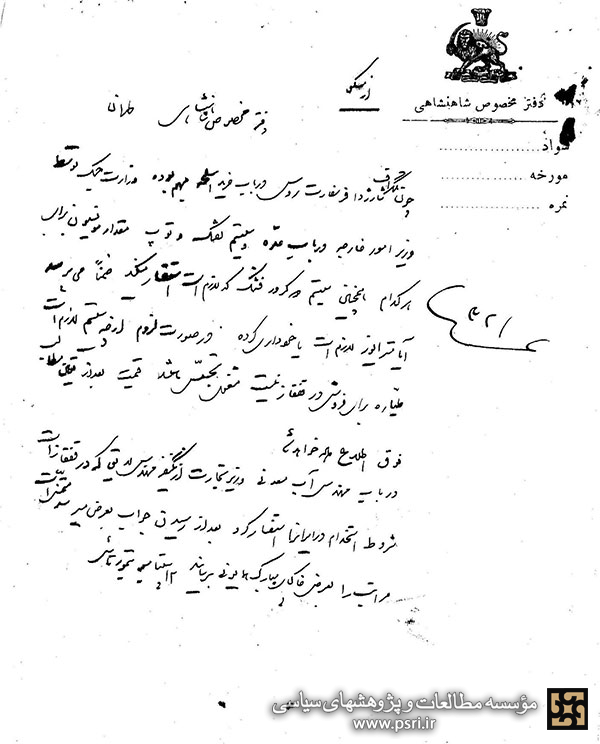 دفتر مخصوص شاهنشاهی
سواد
مورخه
نمره
از مسکو
دفتر مخصوص شاهنشاهی طهران
چون تلگراف شارژدافر سفارت روس در باب خرید اسلحه مبهم بوده وزارت جنگ توسط
وزیر امور خارجه در باب سیستم تفنگ و توپ مقدار مونیسیون برای
هر کدام همچنین سیستم فشنگ که لازم است استفسار میکند ضمناً می‌پرسد
آیا لازم است یا خودداری کرده در صورت لزوم از چه سیستم لازم است
طیاره برای فروش در قفقاز نیست مشغول تجسس باشد قیمت بعد از
فوق اطلاع خواهد
در باب مهندس آب معدنی وزیر تجارت از یک نفر مهندس که در قفقاز است
شروط استخدام در ایران را استفسار کرد بعد از رسیدن جواب بعرض میرسد متمنی است
مراتب را بعرض خاکپای مبارک همایونی برسانید تیمورتاش
۳۲۱
مؤسسه مطالعات و پژوهشهای سیاسی
www.psri.ir